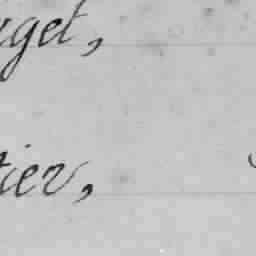 uget,
tier,